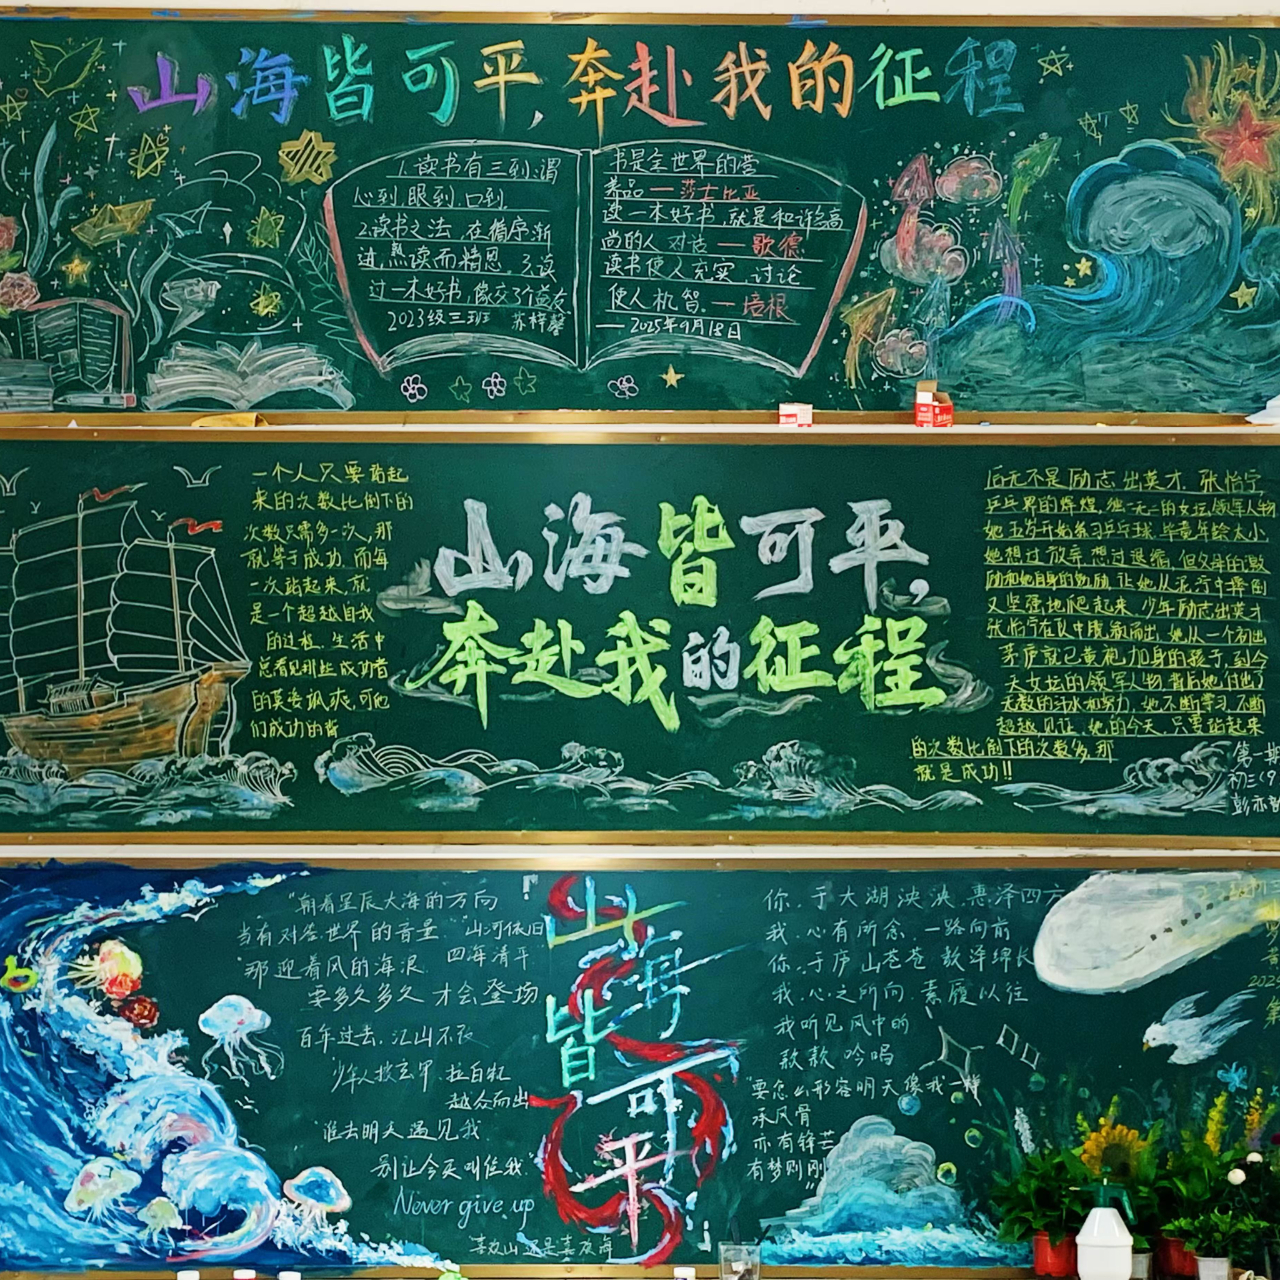 山海皆可平,奔赴我的征程
1.读书有三到,谓
心到,眼到,口到。
2.读书之法,在循序渐
进,熟读而精思。3.读
过一本好书,像交了个益友
2023级三班 苏梓馨
书是全世界的营
养品 — 莎士比亚
读一本好书,就是和许多高
尚的人对话 — 歌德
读书使人充实,讨论
使人机智。— 培根
— 2025年9月18日
一个人只要站起
来的次数比倒下的
次数只需多一次,那
就等于成功.而每
一次站起来,就
是一个超越自我
的过程.生活中
总看见那些成功者
的英姿飒爽,可他
们成功的背
山海皆可平,
奔赴我的征程
后无不是励志出英才.张怡宁
乒乒界的辉煌,独一无二的女坛领军人物
她五岁开始练习乒乓球.毕竟年纪太小
她想过放弃想过退缩.但父母的激
励和她自身的勉励.让她从无数摔倒
又坚强地爬起来.少年励志出英才
张怡宁在队中脱颖而出.她从一个初出
茅庐就已黄袍加身的孩子,到今
天女坛的领军人物.背后她付出了
无数的汗水和努力.她不断学习.不断
超越.见证.她的今天.只要站起来
的次数比倒下的次数多,那
就是成功!!
第一期
初三(9
彭亦
"朝着星辰大海的方向
当有对答世界的音量" "山河依旧
四海清平
"那迎着风的海浪
要多久多久 才会登场
百年过去,江山不衣
少年人披玄甲.拉白
越众而出
"谁去明天遇见我
别让今天叫住我"
Never give up
喜欢山还是喜欢海
山海皆可平
你.于大湖泱泱.惠泽四方
我.心有所念.一路向前
你.于庐山苍苍 敦泽绵长
我.心之所向.素履以往
我听见风中的
款款吟唱
"要怎么形容明天像我一样
承风骨
亦有锋芒
有梦则刚"